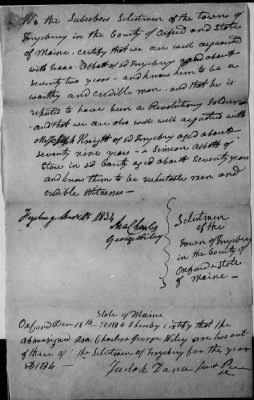 We the Subscribers Selectmen of the town of
Fryeburg in the County of Oxford and State
of Maine certify that we are well acquainted
with Isaac Abbott of sd Fryeburg aged about
seventy two years - and know him to be a
worthy and credible man - and that he is
reputed to have been a Revolutionary Soldier
- and that we are also well acquainted with
Knight of sd Fryeburg aged about
seventy nine years - & Simeon Abbott of
Stow in sd County aged about Seventy years
and know them to be reputable men and
credible witnesses -
Fryeburg 1834
Asa Charles
George Wiley
Selectmen
of the
Town of Fryeburg
in the County of
Oxford & State
of Maine -
State of Maine
Oxford Dec 18th 1834 I hereby certify that the
abovesigned Asa Charles & George Wiley are two out
of three of the Selectmen of Fryeburg for the year
AD 1834 -
Judah Dana Jus Pea